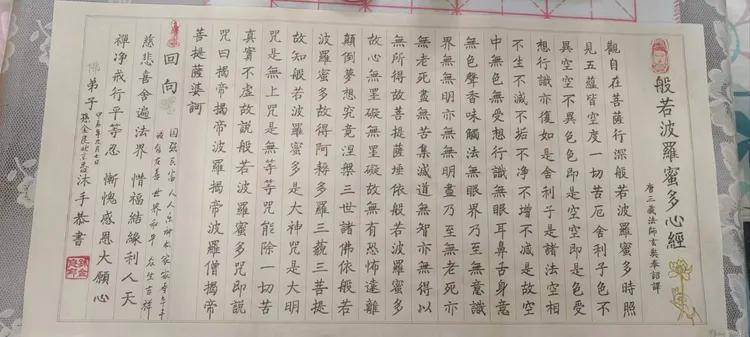 般若波羅蜜多心經
唐三藏法師玄奘奉詔譯
觀自在菩薩行深般若波羅蜜多時照
見五蘊皆空度一切苦厄舍利子色不
異空空不異色色即是空空即是色受
想行識亦復如是舍利子是諸法空相
不生不滅不垢不淨不增不減是故空
中無色無受想行識無眼耳鼻舌身意
無色聲香味觸法無眼界乃至無意識
界無無明亦無無明盡乃至無老死亦
無老死盡無苦集滅道無智亦無得以
無所得故菩提薩埵依般若波羅蜜多
故心無罣礙無罣礙故無有恐怖遠離
顛倒夢想究竟涅槃三世諸佛依般若
波羅蜜多故得阿耨多羅三藐三菩提
故知般若波羅蜜多是大神咒是大明
咒是無上咒是無等等咒能除一切苦
真實不虛故說般若波羅蜜多咒即說
咒曰揭帝揭帝波羅揭帝波羅僧揭帝
菩提薩婆訶
回向
世界和平众生吉祥
慈悲喜舍遍法界 惜福結緣利人天
禪净戒行平等忍 慚愧感恩大願心
佛弟子 孫金民 沐手恭書